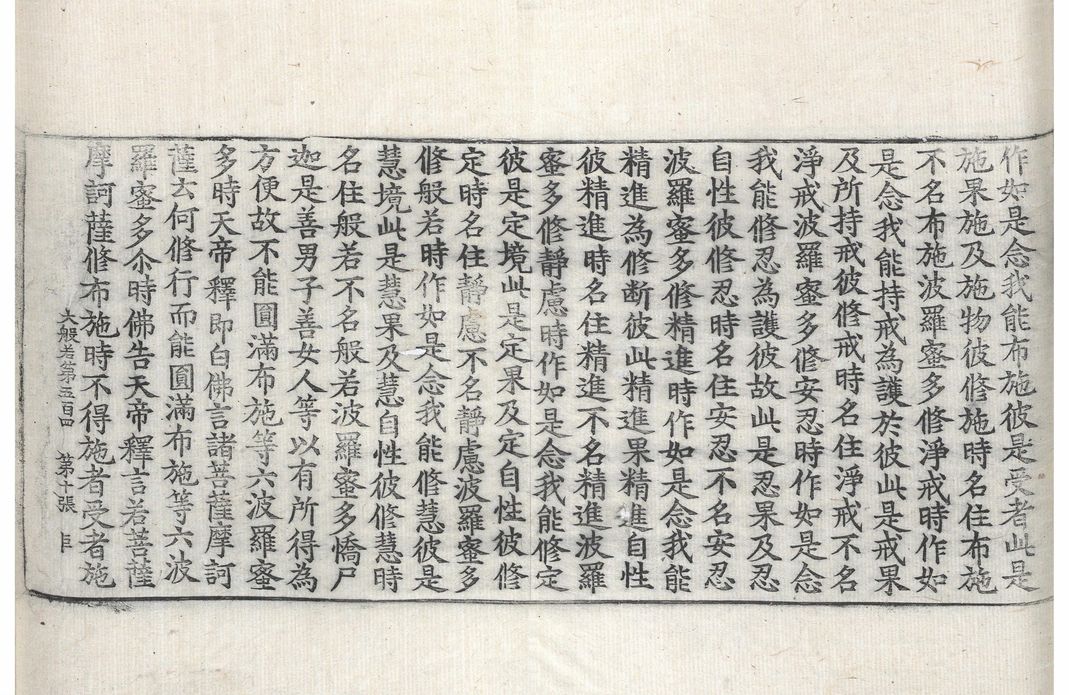 作如是念我能布施彼是受者此是
施果施及施物彼修施時名住布施
不名布施波羅蜜多修淨戒時作如
是念我能持戒為護於彼此是戒果
及所持戒彼修戒時名住淨戒不名
淨戒波羅蜜多修安忍時作如是念
我能修忍為護彼故此是忍果及忍
自性彼修忍時名住安忍不名安忍
波羅蜜多修精進時作如是念我能
精進為修断彼此精進果精進自性
彼精進時名住精進不名精進波羅
蜜多修靜慮時作如是念我能修定
彼是定境此是定果及定自性彼修
定時名住靜慮不名靜慮波羅蜜多
修般若時作如是念我能修慧彼是
慧境此是慧果及慧自性彼修慧時
名住般若不名般若波羅蜜多憍尸
迦是善男子善女人等以有所得為
方便故不能圓滿布施等六波羅蜜
多時天帝釋即白佛言諸菩薩摩訶
薩云何修行而能圓滿布施等六波
羅蜜多尒時佛告天帝釋言若菩薩
摩訶薩修布施時不得施者受者施
大般若第五百四 第十張